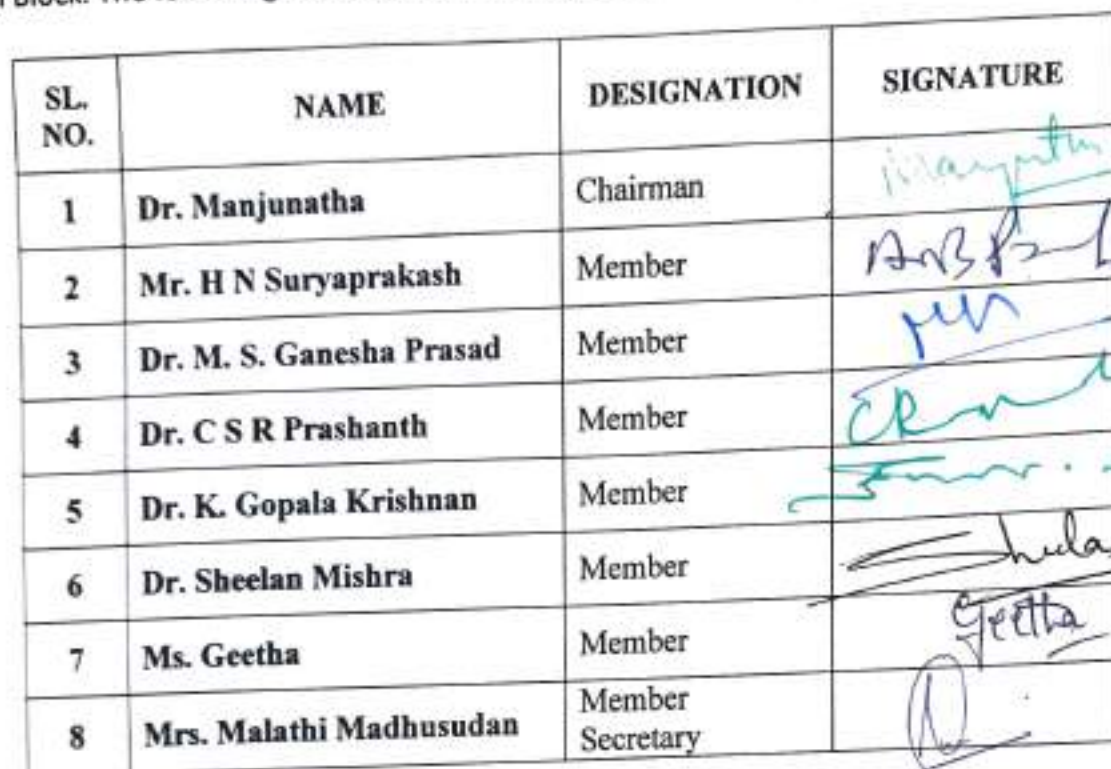 SL. NO. NAME DESIGNATION SIGNATURE
1 Dr. Manjunatha Chairman
2 Mr. H N Suryaprakash Member
3 Dr. M. S. Ganesha Prasad Member
4 Dr. C S R Prashanth Member
5 Dr. K. Gopala Krishnan Member
6 Dr. Sheelan Mishra Member
7 Ms. Geetha Member Geetha
8 Mrs. Malathi Madhusudan Member Secretary